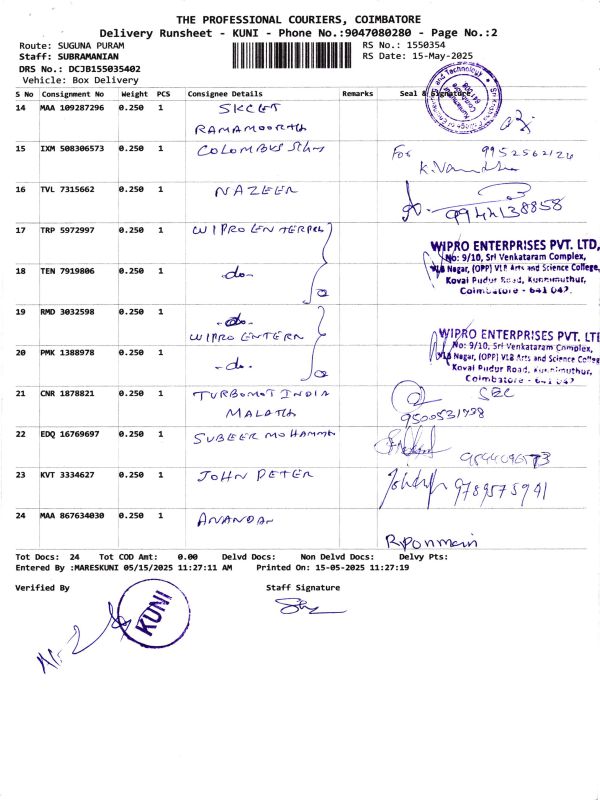 THE PROFESSIONAL COURIERS, COIMBATORE
Delivery Runsheet - KUNI - Phone No.:9047080280 - Page No.:2
Route: SUGUNA PURAM
RS No.: 1550354
Staff: SUBRAMANIAN
RS Date: 15-May-2025
DRS No.: DCJB155035402
Vehicle: Box Delivery
S No Consignment No Weight PCS Consignee Details Remarks Seal & Signature
14 MAA 109287296 0.250 1 SKCET
RAMAMOORTH
15 IXM 508306573 0.250 1 COLOMBUS For 9952562124
K.Vanitha
16 TVL 7315662 0.250 1 NAZEER 9942138858
17 TRP 5972997 0.250 1 WIPRO ENTERPRI
WIPRO ENTERPRISES PVT. LTD,
No: 9/10, Sri Venkataram Complex,
VLB Nagar, (OPP) VLB Arts and Science College,
Kovai Pudur Road, Kuniamuthur,
Coimbatore - 641 042.
18 TEN 7919806 0.250 1 -do-
19 RMD 3032598 0.250 1 -do-
WIPRO ENTERN
WIPRO ENTERPRISES PVT. LTD
No: 9/10, Sri Venkataram Complex,
VLB Nagar, (OPP) VLB Arts and Science Colleg
Kovai Pudur Road, Kuniamuthur,
Coimbatore - 641 042
20 PMK 1388978 0.250 1 -do-
21 CNR 1878821 0.250 1 TURBOMOT INDIA
MALATH 9500531798
22 EDQ 16769697 0.250 1 SUBEER MOHAMMA
23 KVT 3334627 0.250 1 JOHN PETER 9789575941
24 MAA 867634030 0.250 1 ANANDAN
R.Ponmani
Tot Docs: 24 Tot COD Amt: 0.00 Delvd Docs: Non Delvd Docs: Delvy Pts:
Entered By :MARESKUNI 05/15/2025 11:27:11 AM Printed On: 15-05-2025 11:27:19
Verified By Staff Signature
KUNI